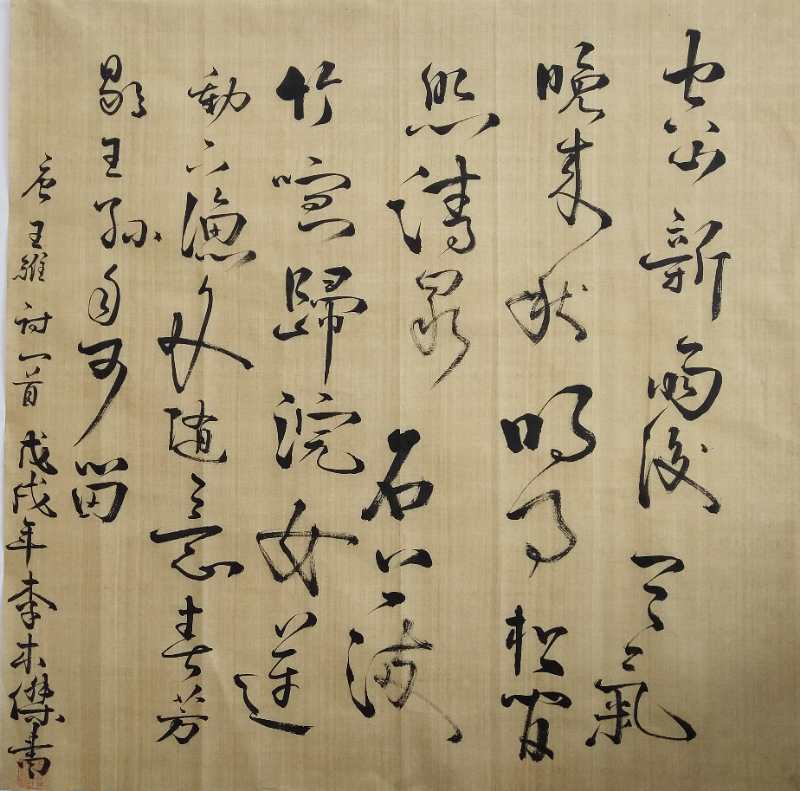 空山新雨後天氣
晚来秋明月松間
照清泉石上流
竹喧歸浣女蓮
動下漁舟随意春芳
歇王孫自可留
唐王維詩一首戊戌年李木傑書